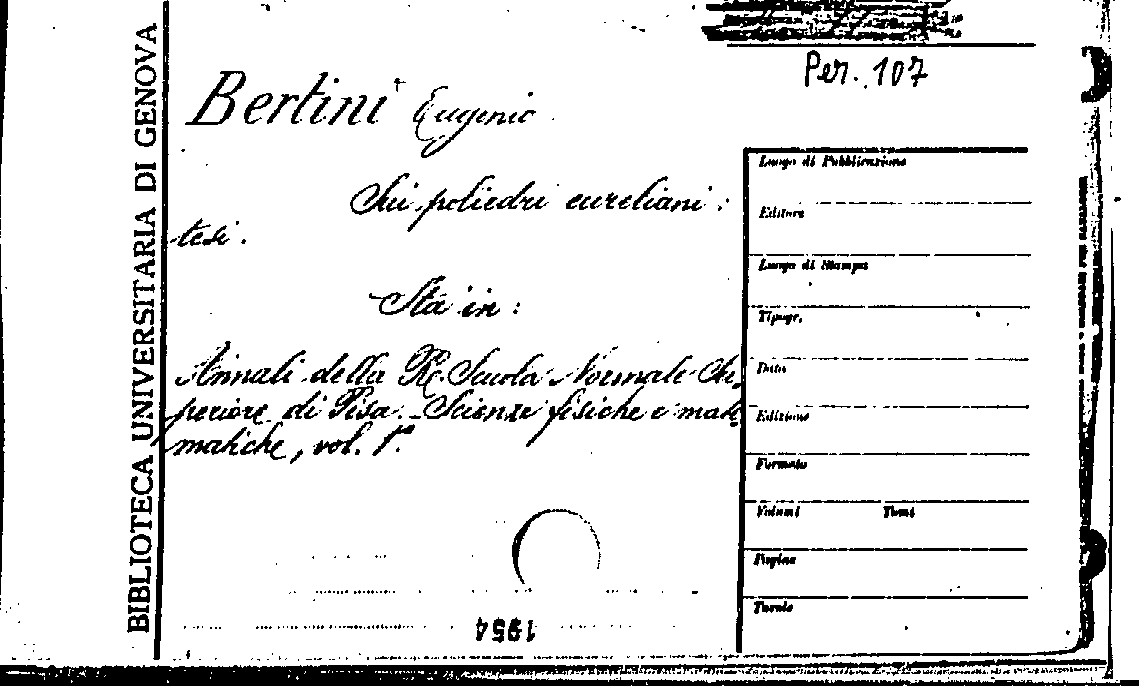 Per. 107
BIBLIOTECA UNIVERSITARIA DI GENOVA
Bertini Eugenio
Sui poliedri eureliani:
tesi.
Sta in:
Annali della R. Scuola Normale Su,
periore di Pisa. - Scienze fisiche e mate
matiche, vol. 1º.
Luogo di Pubblicazione
Editore
Luogo di Stampa
Tipogr.
Data
Edizione
Formato
Volumi Tomi
Pagine
Tavole
1954